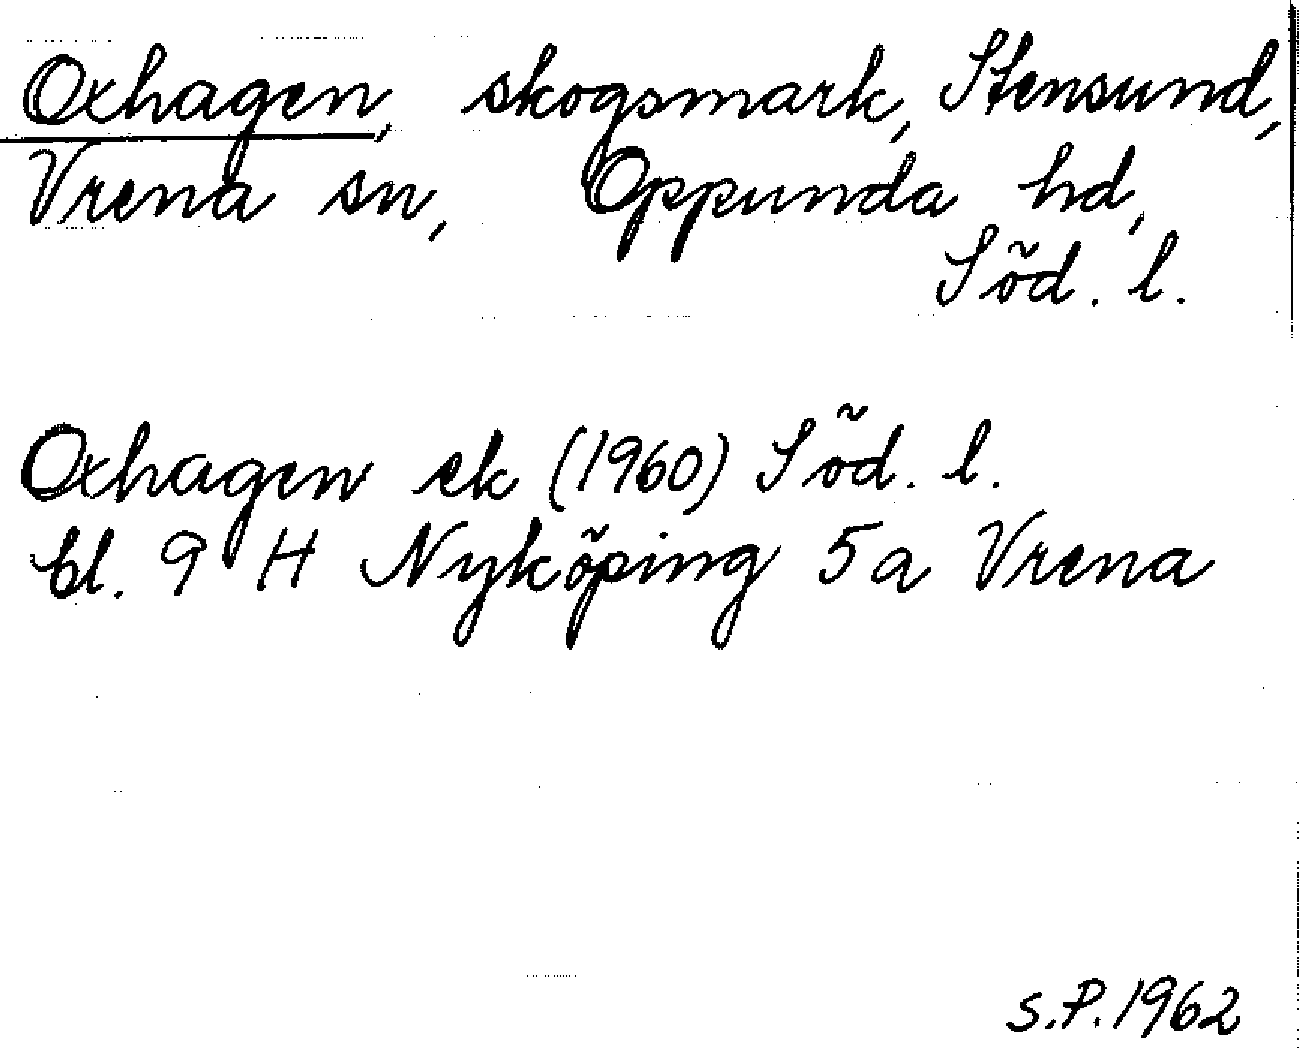 Oxhagen, skogsmark, Stensund,
Vrena sn, Oppunda hd,
Söd. l.
Oxhagen ek (1960) Söd. l.
bl. 9 H Nyköping 5a Vrena
S.P. 1962